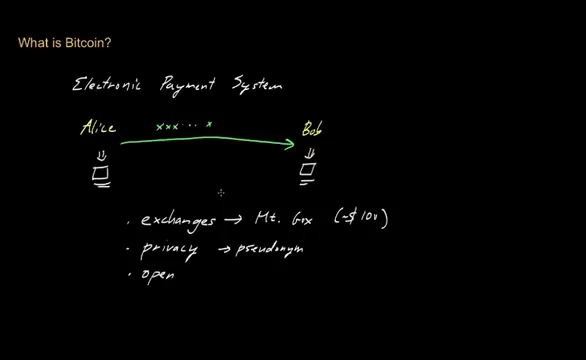 What is Bitcoin?
Electronic Payment System
Alice xxx... x Bob
. exchanges → Mt. Gox (~$100)
. privacy → pseudonym
. open